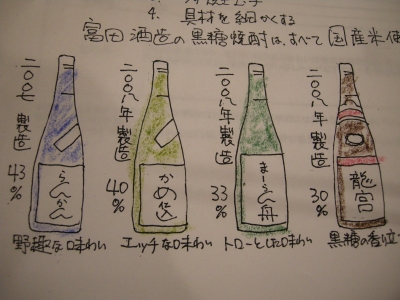 4. 具材を細かくする
富田酒造の黒糖焼酎は、すべて国産米使
二〇〇七製造
43%
らんかん
野趣な味わい
二〇〇八年製造
40%
かめ仕込
エッチな味わい
二〇〇八年製造
33%
まーらん舟
トローとした味わい
二〇〇八年製造
30%
龍宮
黒糖の香り立